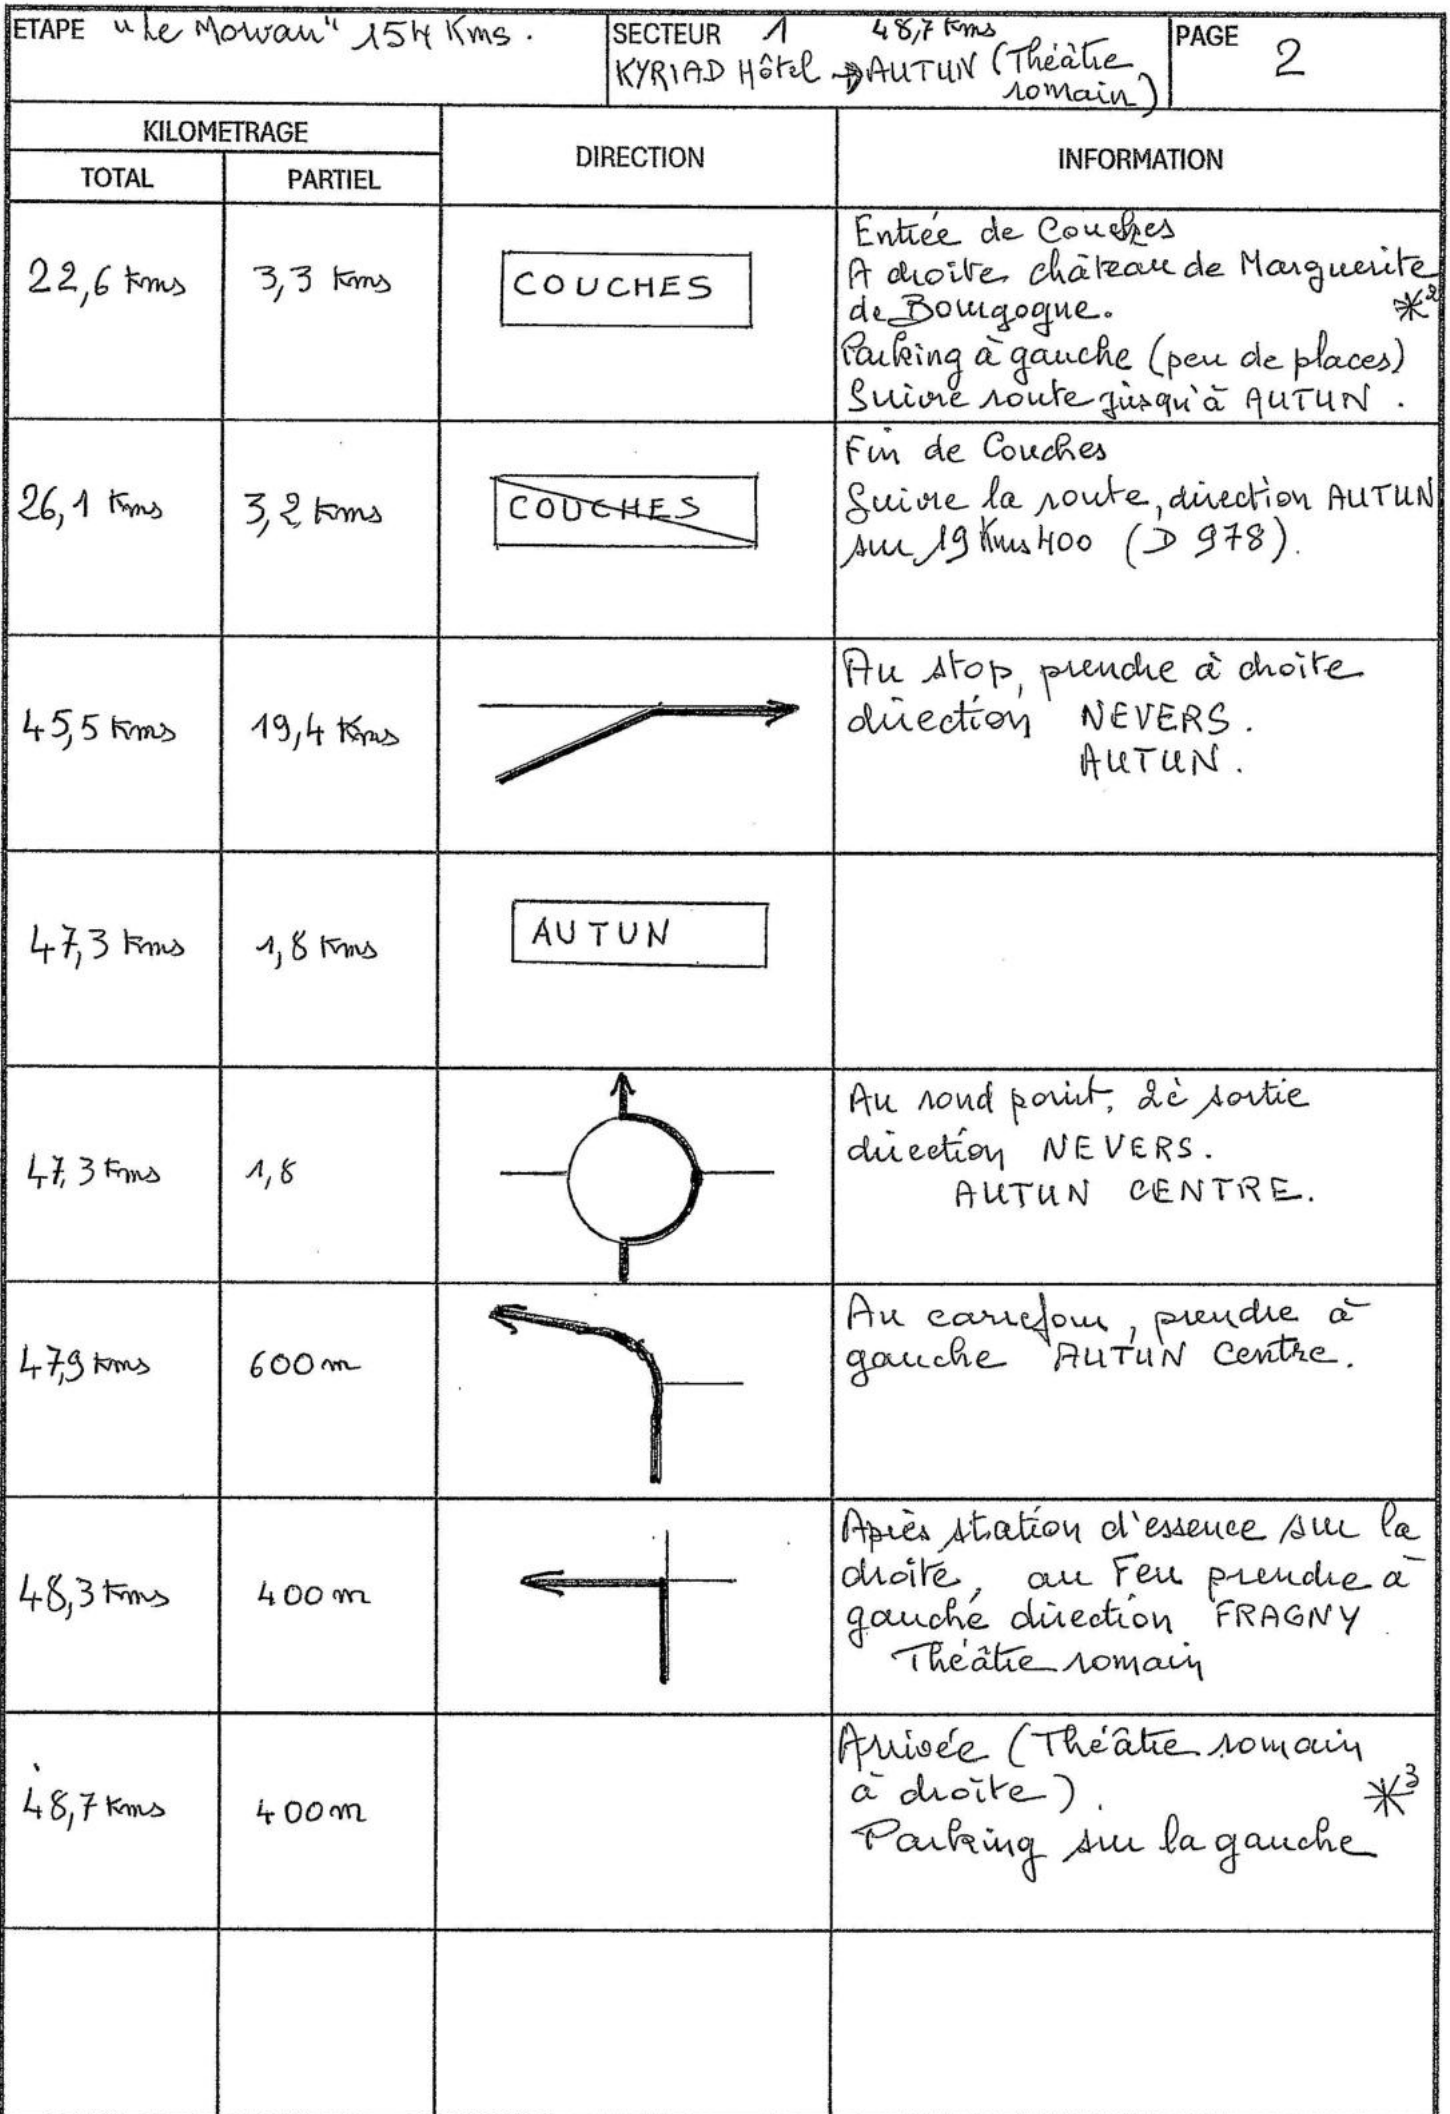 ETAPE "Le Morvan" 154 Kms.
SECTEUR 1 48,7 Kms
KYRIAD Hôtel → AUTUN (Théâtre
romain)
PAGE 2
KILOMETRAGE
TOTAL
PARTIEL
DIRECTION
INFORMATION
22,6 Kms
3,3 Kms
COUCHES
Entrée de Couches
A droite château de Marguerite
de Bourgogne. *2
Parking à gauche (peu de places)
Suivre route jusqu'à AUTUN.
26,1 Kms
3,2 Kms
COUCHES
Fin de Couches
Suivre la route, direction AUTUN
sur 19 Kms 400 (D 978).
45,5 Kms
19,4 Kms
Au stop, prendre à droite
direction NEVERS.
AUTUN.
47,3 Kms
1,8 Kms
AUTUN
47,3 Kms
1,8
Au rond point, 2è sortie
direction NEVERS.
AUTUN CENTRE.
47,9 Kms
600 m
Au carrefour, prendre à
gauche AUTUN Centre.
48,3 Kms
400 m
Après station d'essence sur la
droite, au Feu prendre à
gauche direction FRAGNY
Théâtre romain
48,7 Kms
400 m
Arrivée (Théâtre romain
à droite). *3
Parking sur la gauche